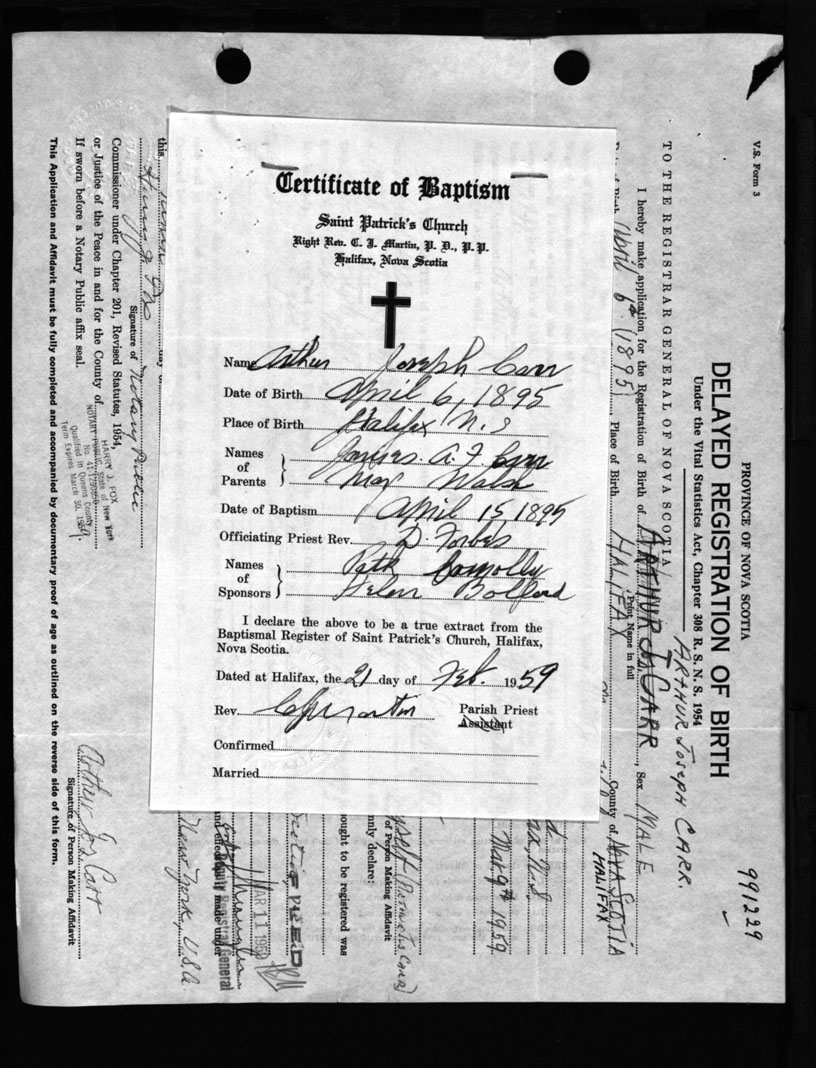 Certificate of Baptism
Saint Patrick's Church
Right Rev. C. J. Martin, P. D., P. P.
Halifax, Nova Scotia
Name Arthur Joseph Carr
Date of Birth April 6, 1895
Place of Birth Halifax N. S
Names of Parents James A. F Carr
May Walsh
Date of Baptism April 15, 1895
Officiating Priest Rev. D. Forbes
Names of Sponsors Patk Connolly
Helen Bolford
I declare the above to be a true extract from the
Baptismal Register of Saint Patrick's Church, Halifax,
Nova Scotia.
Dated at Halifax, the 21 day of Feb. 1959
Rev. C J Martin Parish Priest
Assistant
Confirmed
Married
V.S. Form 3
991229
PROVINCE OF NOVA SCOTIA
DELAYED REGISTRATION OF BIRTH
Under the Vital Statistics Act, Chapter 308 R. S. N. S. 1954
ARTHUR JOSEPH CARR.
TO THE REGISTRAR GENERAL OF NOVA SCOTIA
I hereby make application for the Registration of Birth of ARTHUR JS CARR, Sex MALE
(Print Name in full
Date of Birth April 6th (1895) Place of Birth HALIFAX County of NOVA SCOTIA
HALIFAX
Mar 9th 1959
ought to be registered was
nly declare:
of Person Making Affidavit
MAR 11 1959
Deputy Registrar General
and effect made under
New York, U.S.A.
this day of
Signature of Notary Public
Commissioner under Chapter 201, Revised Statutes, 1954,
or Justice of the Peace in and for the County of
If sworn before a Notary Public affix seal.
HARRY J. FOX
NOTARY PUBLIC, State of New York
Qualified in Queens County
Term Expires March 30, 19
Arthur Jos Carr
Signature of Person Making Affidavit
This Application and Affidavit must be fully completed and accompanied by documentary proof of age as outlined on the reverse side of this form.